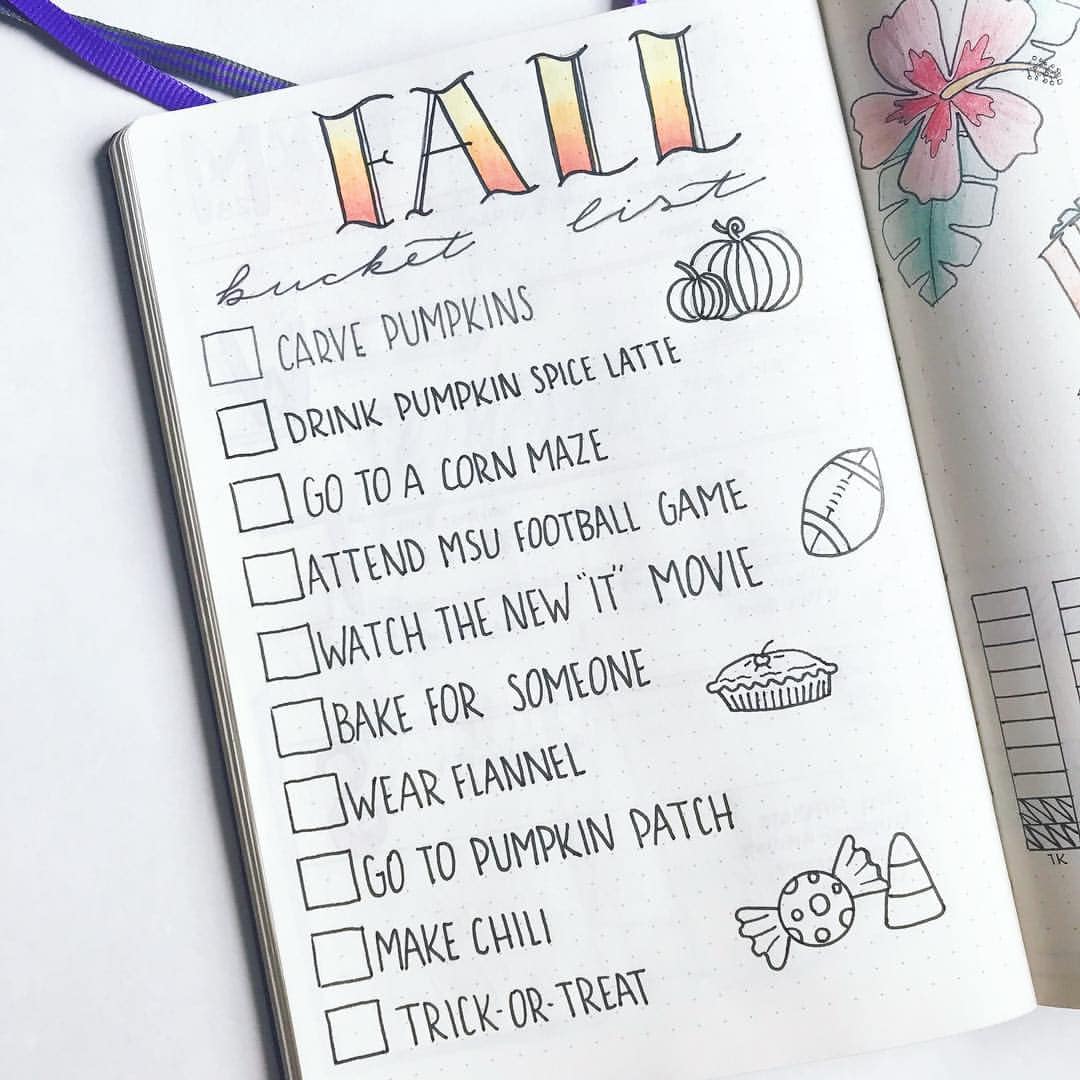 FALL
bucket list
CARVE PUMPKINS
DRINK PUMPKIN SPICE LATTE
GO TO A CORN MAZE
ATTEND MSU FOOTBALL GAME
WATCH THE NEW "IT" MOVIE
BAKE FOR SOMEONE
WEAR FLANNEL
GO TO PUMPKIN PATCH
MAKE CHILI
TRICK-OR-TREAT
1K